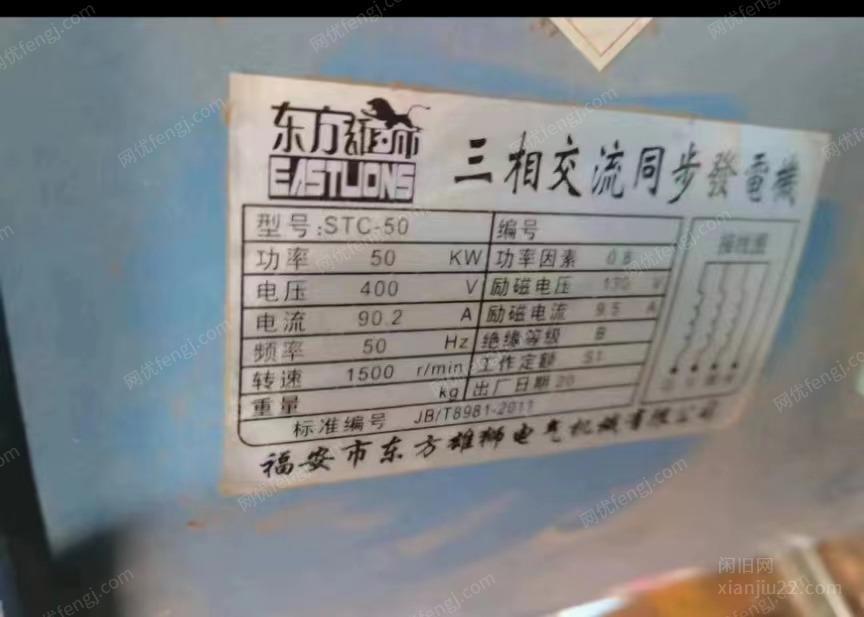 东方雄狮
EASTLIONS
三相交流同步發電機
型号:STC-50 编号
功率 50 KW 功率因素 0.8
电压 400 V 励磁电压 130 V
电流 90.2 A 励磁电流 9.5 A
频率 50 Hz 绝缘等级 B
转速 1500 r/min 工作定额 S1
重量 kg 出厂日期 20
标准编号 JB/T8981-2011
接线图
福安市东方雄狮电气机械有限公司
网优fengj.com
闲旧网
xianjiu22.com